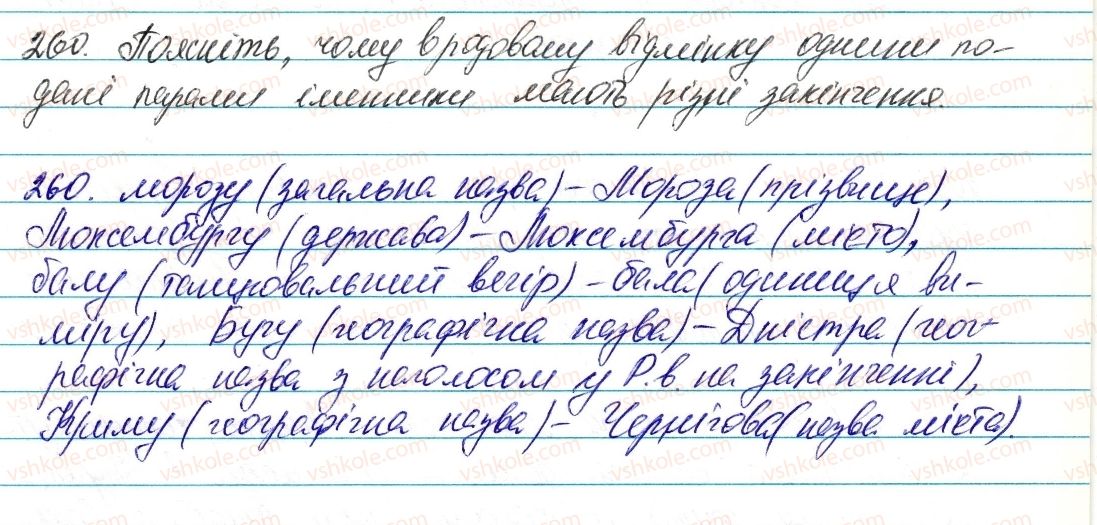 260. Поясніть, чому в родовому відмінку однини по-
дані парами іменники мають різні закінчення.
260. морозу (загальна назва) – Мороза (прізвище),
Люксембургу (держава) – Люксембурга (місто),
балу (танцювальний вечір) – бала (одиниця ви-
міру), Бугу (географічна назва) – Дністра (геог-
рафічна назва з наголосом у Р.в. на закінченні),
Криму (географічна назва) – Чернігова (назва міста).